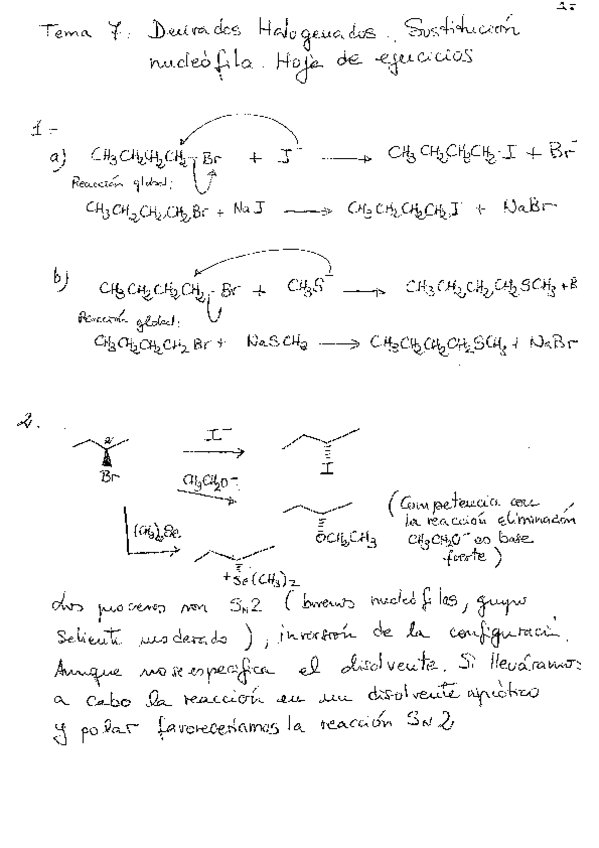 1-
Tema 7: Derivados Halogenados. Sustitución
nucleófila. Hoja de ejercicios
1-
a) CH3CH2CH2CH2-Br + I⁻ → CH3CH2CH2CH2-I + Br⁻
Reacción global:
CH3CH2CH2CH2Br + NaI → CH3CH2CH2CH2I + NaBr
b) CH3CH2CH2CH2-Br + CH3S⁻ → CH3CH2CH2CH2SCH3 + B
Reacción global:
CH3CH2CH2CH2Br + NaSCH3 → CH3CH2CH2CH2SCH3 + NaBr
2.
I⁻
Br
I
CH3CH2O⁻
OCH2CH3
(Competencia con
la reacción eliminación
CH3CH2O⁻ es base
fuerte)
(CH3)2Se
+Se(CH3)2
Los procesos son SN2 (buenos nucleófilos, grupo
saliente moderado), inversión de la configuració
Aunque no se especifica el disolvente. Si lleváramos
a cabo la reacción en un disolvente aprótico
y polar favoreceríamos la reacción SN2